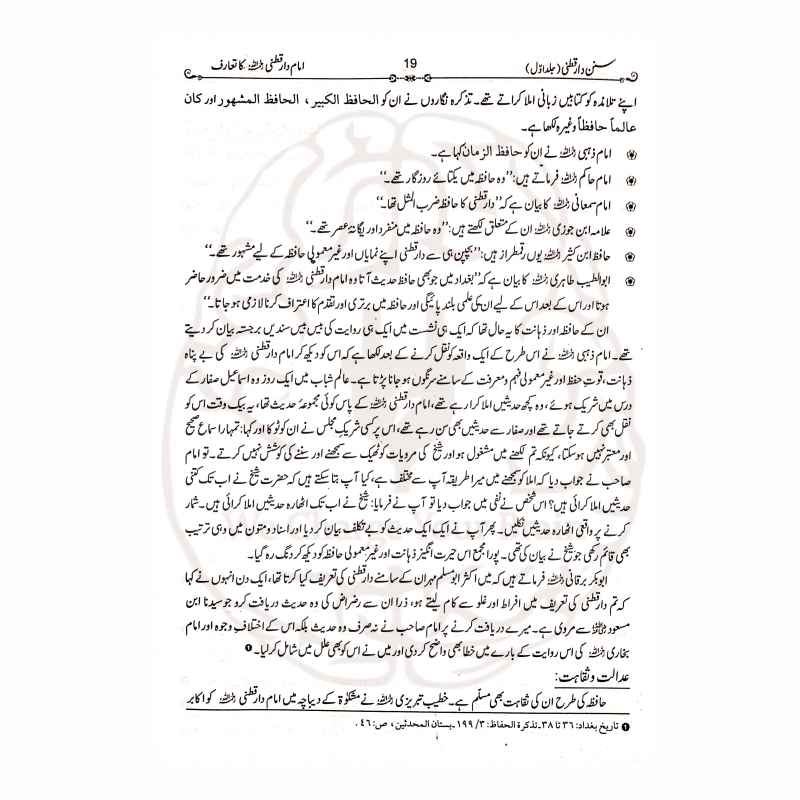 سنن دارقطنی (جلد اوّل)
19
امام دارقطنی رحمہ اللہ کا تعارف
اپنے تلامذہ کو کتابیں زبانی املا کراتے تھے۔ تذکرہ نگاروں نے ان کو الحافظ الكبير ، الحافظ المشهور اور كان
عالماً حافظاً وغیرہ لکھا ہے۔
امام ذہبی رحمہ اللہ نے ان کو حافظ الزمان کہا ہے۔
امام حاکم رحمہ اللہ فرماتے ہیں: ”وہ حافظہ میں یکتائے روزگار تھے۔“
امام سمعانی رحمہ اللہ کا بیان ہے کہ ”دارقطنی کا حافظہ ضرب المثل تھا۔“
علامہ ابن جوزی رحمہ اللہ ان کے متعلق لکھتے ہیں: ”وہ حافظہ میں منفرد اور یگانۂ عصر تھے۔“
حافظ ابن کثیر رحمہ اللہ یوں رقمطراز ہیں: ”بچپن ہی سے دارقطنی اپنے نمایاں اور غیر معمولی حافظہ کے لیے مشہور تھے۔“
ابوالطیب طاہری رحمہ اللہ کا بیان ہے کہ ”بغداد میں جو بھی حافظ حدیث آتا وہ امام دارقطنی رحمہ اللہ کی خدمت میں ضرور حاضر
ہوتا اور اس کے بعد اس کے لیے ان کی علمی بلند پائیگی اور حافظہ میں برتری اور تقدم کا اعتراف کرنا لازمی ہو جاتا۔“
ان کے حافظہ اور ذہانت کا یہ حال تھا کہ ایک ہی نشست میں ایک ہی روایت کی بیس بیس سندیں برجستہ بیان کر دیتے
تھے۔ امام ذہبی رحمہ اللہ نے اس طرح کے ایک واقعہ کو نقل کرنے کے بعد لکھا ہے کہ اس کو دیکھ کر امام دارقطنی رحمہ اللہ کی بے پناہ
ذہانت، قوتِ حفظ اور غیر معمولی فہم و معرفت کے سامنے سرنگوں ہو جانا پڑتا ہے۔ عالم شباب میں ایک روز وہ اسماعیل صفار کے
درس میں شریک ہوئے، وہ کچھ حدیثیں املا کرا رہے تھے، امام دارقطنی رحمہ اللہ کے پاس کوئی مجموعۂ حدیث تھا، یہ بیک وقت اس کو
نقل بھی کرتے جاتے تھے اور صفار سے حدیثیں بھی سن رہے تھے، اس پر کسی شریکِ مجلس نے ان کو ٹوکا اور کہا: تمہارا سماع صحیح
اور معتبر نہیں ہو سکتا، کیونکہ تم لکھنے میں مشغول ہو اور شیخ کی مرویات کو ٹھیک سے سمجھنے اور سننے کی کوشش نہیں کرتے۔ تو امام
صاحب نے جواب دیا کہ املا کو سمجھنے میں میرا طریقہ آپ سے مختلف ہے، کیا آپ بتا سکتے ہیں کہ حضرت شیخ نے اب تک کتنی
حدیثیں املا کرائی ہیں؟ اس شخص نے نفی میں جواب دیا تو آپ نے فرمایا: شیخ نے اب تک اٹھارہ حدیثیں املا کرائی ہیں۔ شمار
کرنے پر واقعی اٹھارہ حدیثیں نکلیں۔ پھر آپ نے ایک ایک حدیث کو بے تکلف بیان کر دیا اور اسناد و متون میں وہی ترتیب
بھی قائم رکھی جو شیخ نے بیان کی تھی۔ پورا مجمع اس حیرت انگیز ذہانت اور غیر معمولی حافظہ کو دیکھ کر دنگ رہ گیا۔
ابوبکر برقانی رحمہ اللہ فرماتے ہیں کہ میں اکثر ابو مسلم مہران کے سامنے دارقطنی کی تعریف کیا کرتا تھا، ایک دن انہوں نے کہا
کہ تم دارقطنی کی تعریف میں افراط اور غلو سے کام لیتے ہو، ذرا ان سے رضراض کی وہ حدیث دریافت کرو جو سیدنا ابن
مسعود رضی اللہ عنہ سے مروی ہے۔ میرے دریافت کرنے پر امام صاحب نے نہ صرف وہ حدیث بلکہ اس کے اختلافِ وجوہ اور امام
بخاری رحمہ اللہ کی اس روایت کے بارے میں خطا بھی واضح کر دی اور میں نے اس کو بھی علل میں شامل کر لیا۔ ❶
عدالت و ثقاہت:
حافظہ کی طرح ان کی ثقاہت بھی مسلّم ہے۔ خطیب تبریزی رحمہ اللہ نے مشکوٰۃ کے دیباچہ میں امام دارقطنی رحمہ اللہ کو اکابر
❶ تاریخ بغداد: ٣٦ تا ٣٨۔ تذکرة الحفاظ: ٣/ ١٩٩۔ بستان المحدثین، ص: ٤٦.